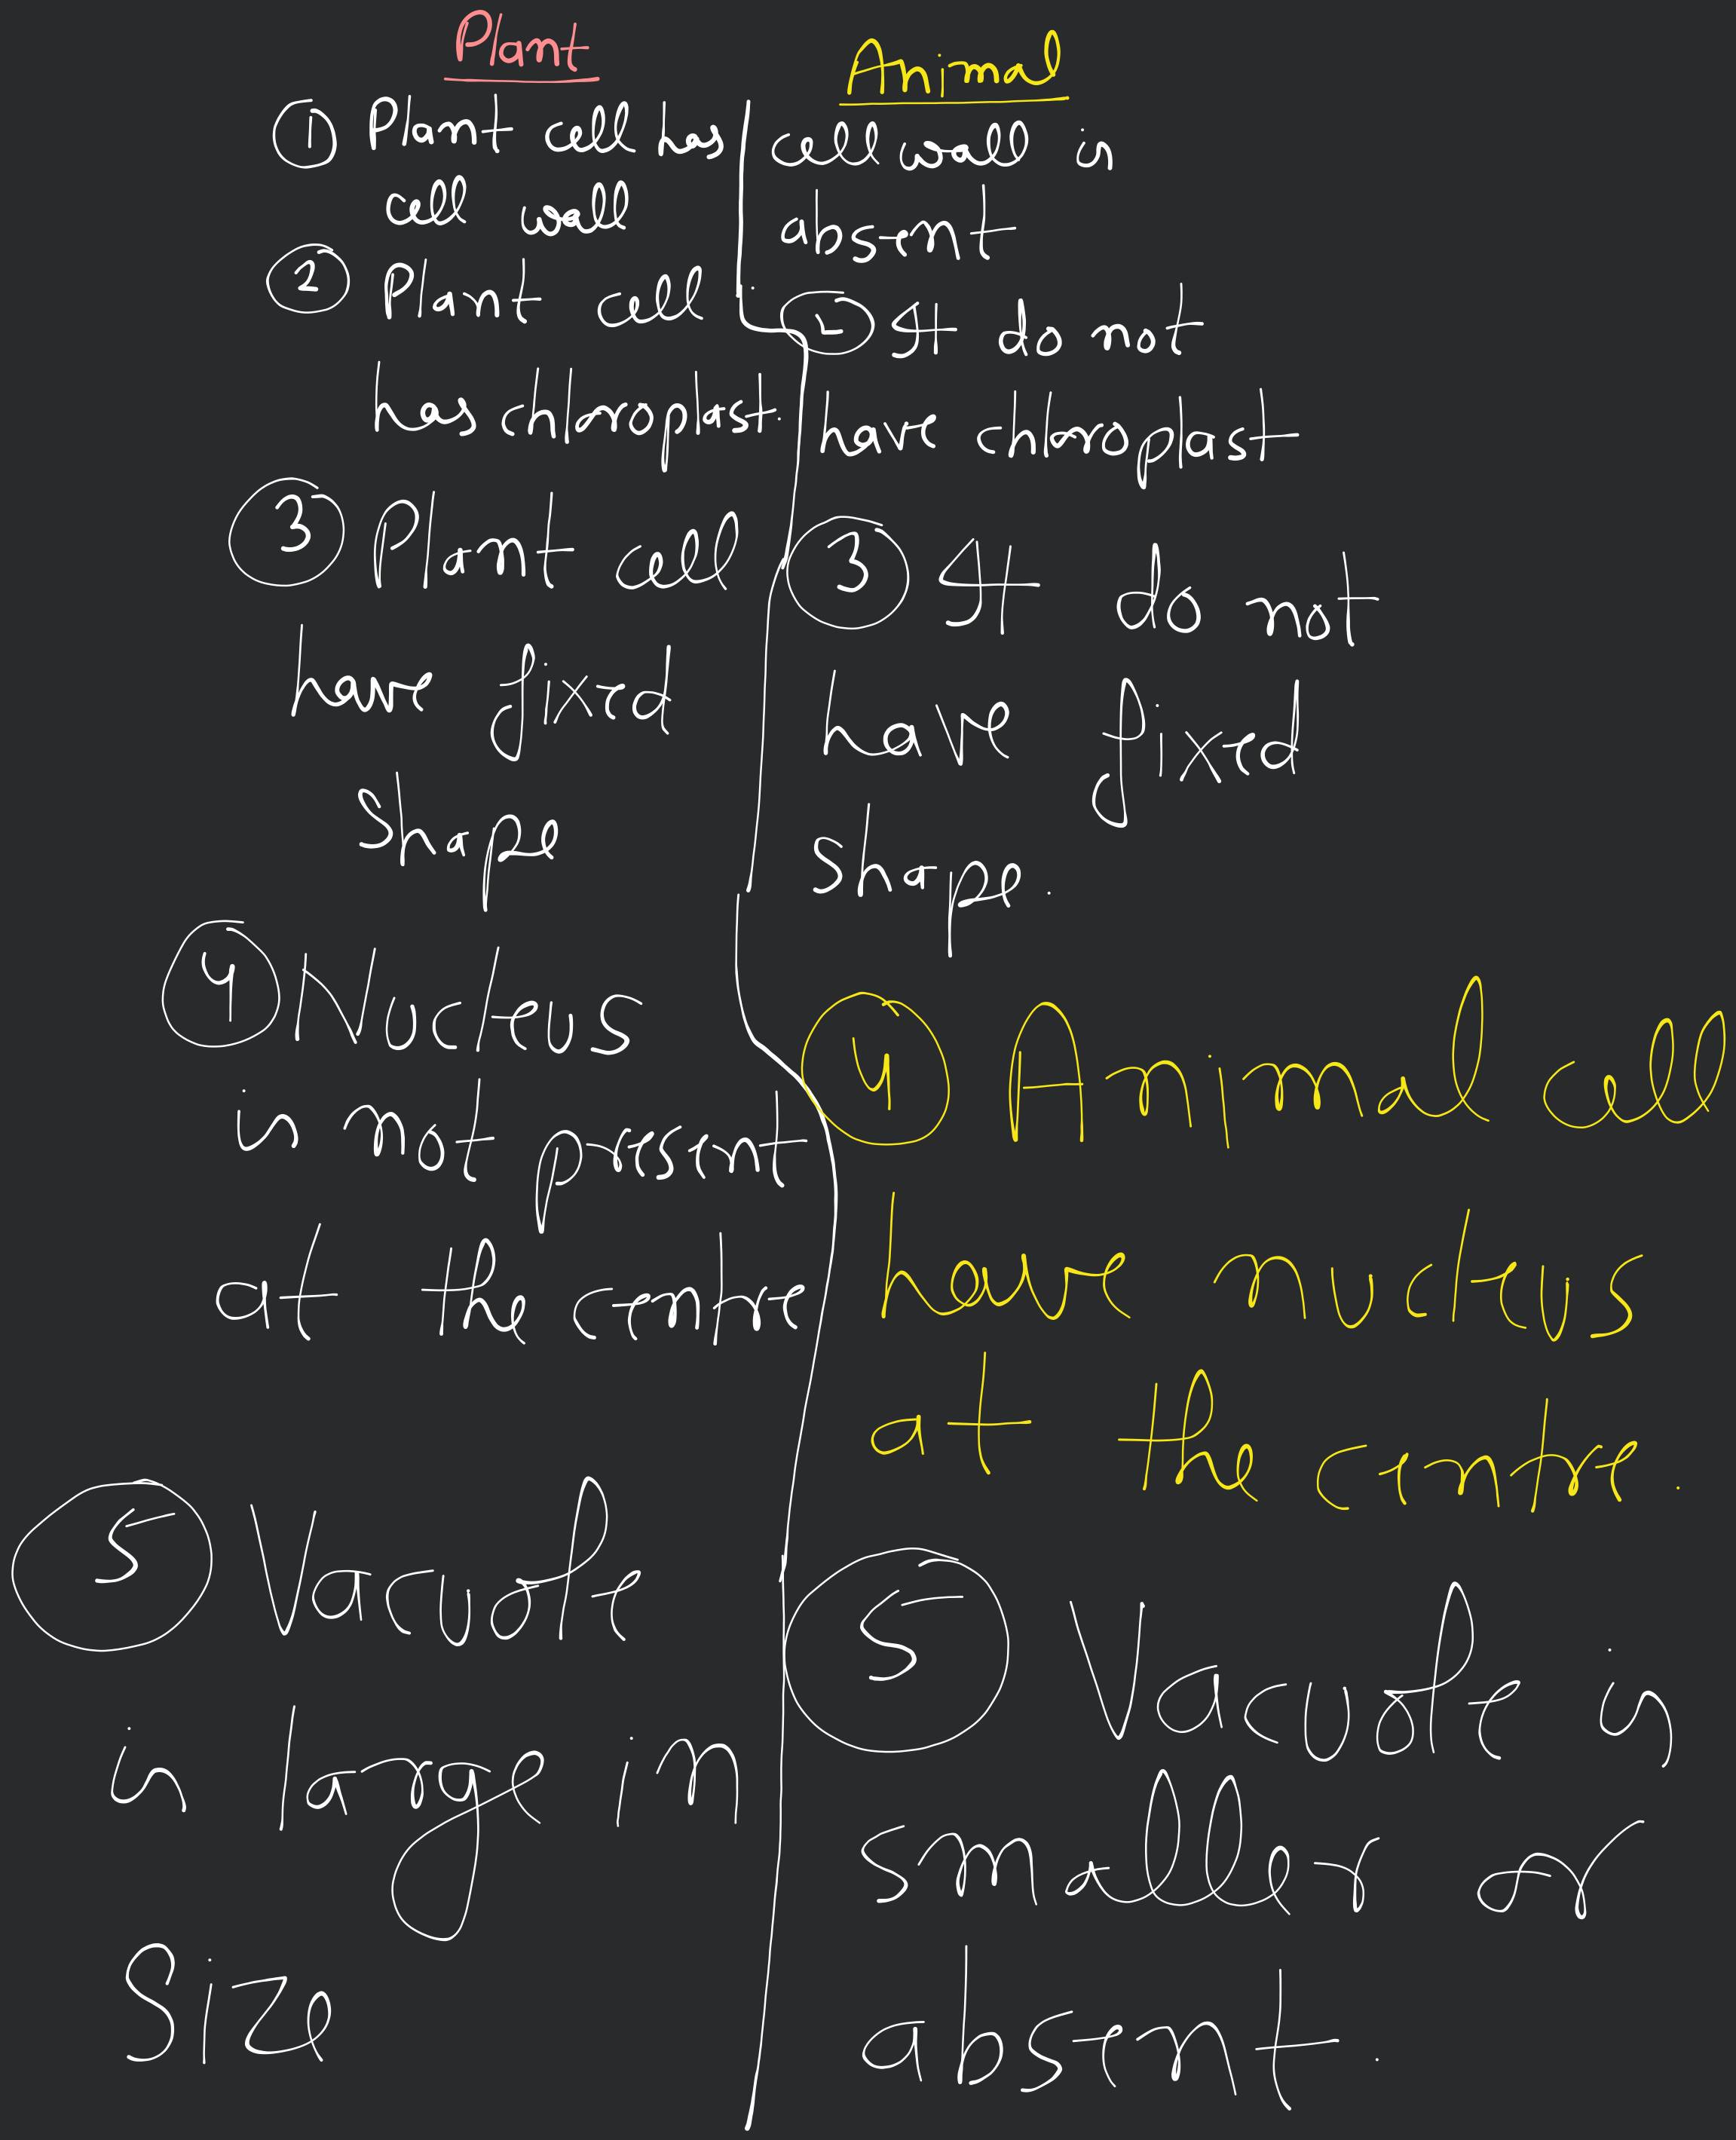 Plant
① Plant cell has
cell wall
② Plant cell
has chloroplast.
③ Plant cell
have fixed
Shape
④ Nucleus
is not present
at the centre
⑤ Vacuole
is large in
Size
Animal
cell wall is
absent
② It do not
have chloroplast
③ It do not
have fixed
shape.
④ Animal cell
have nucleus
at the centre.
⑤ Vacuole is
smaller or
absent.